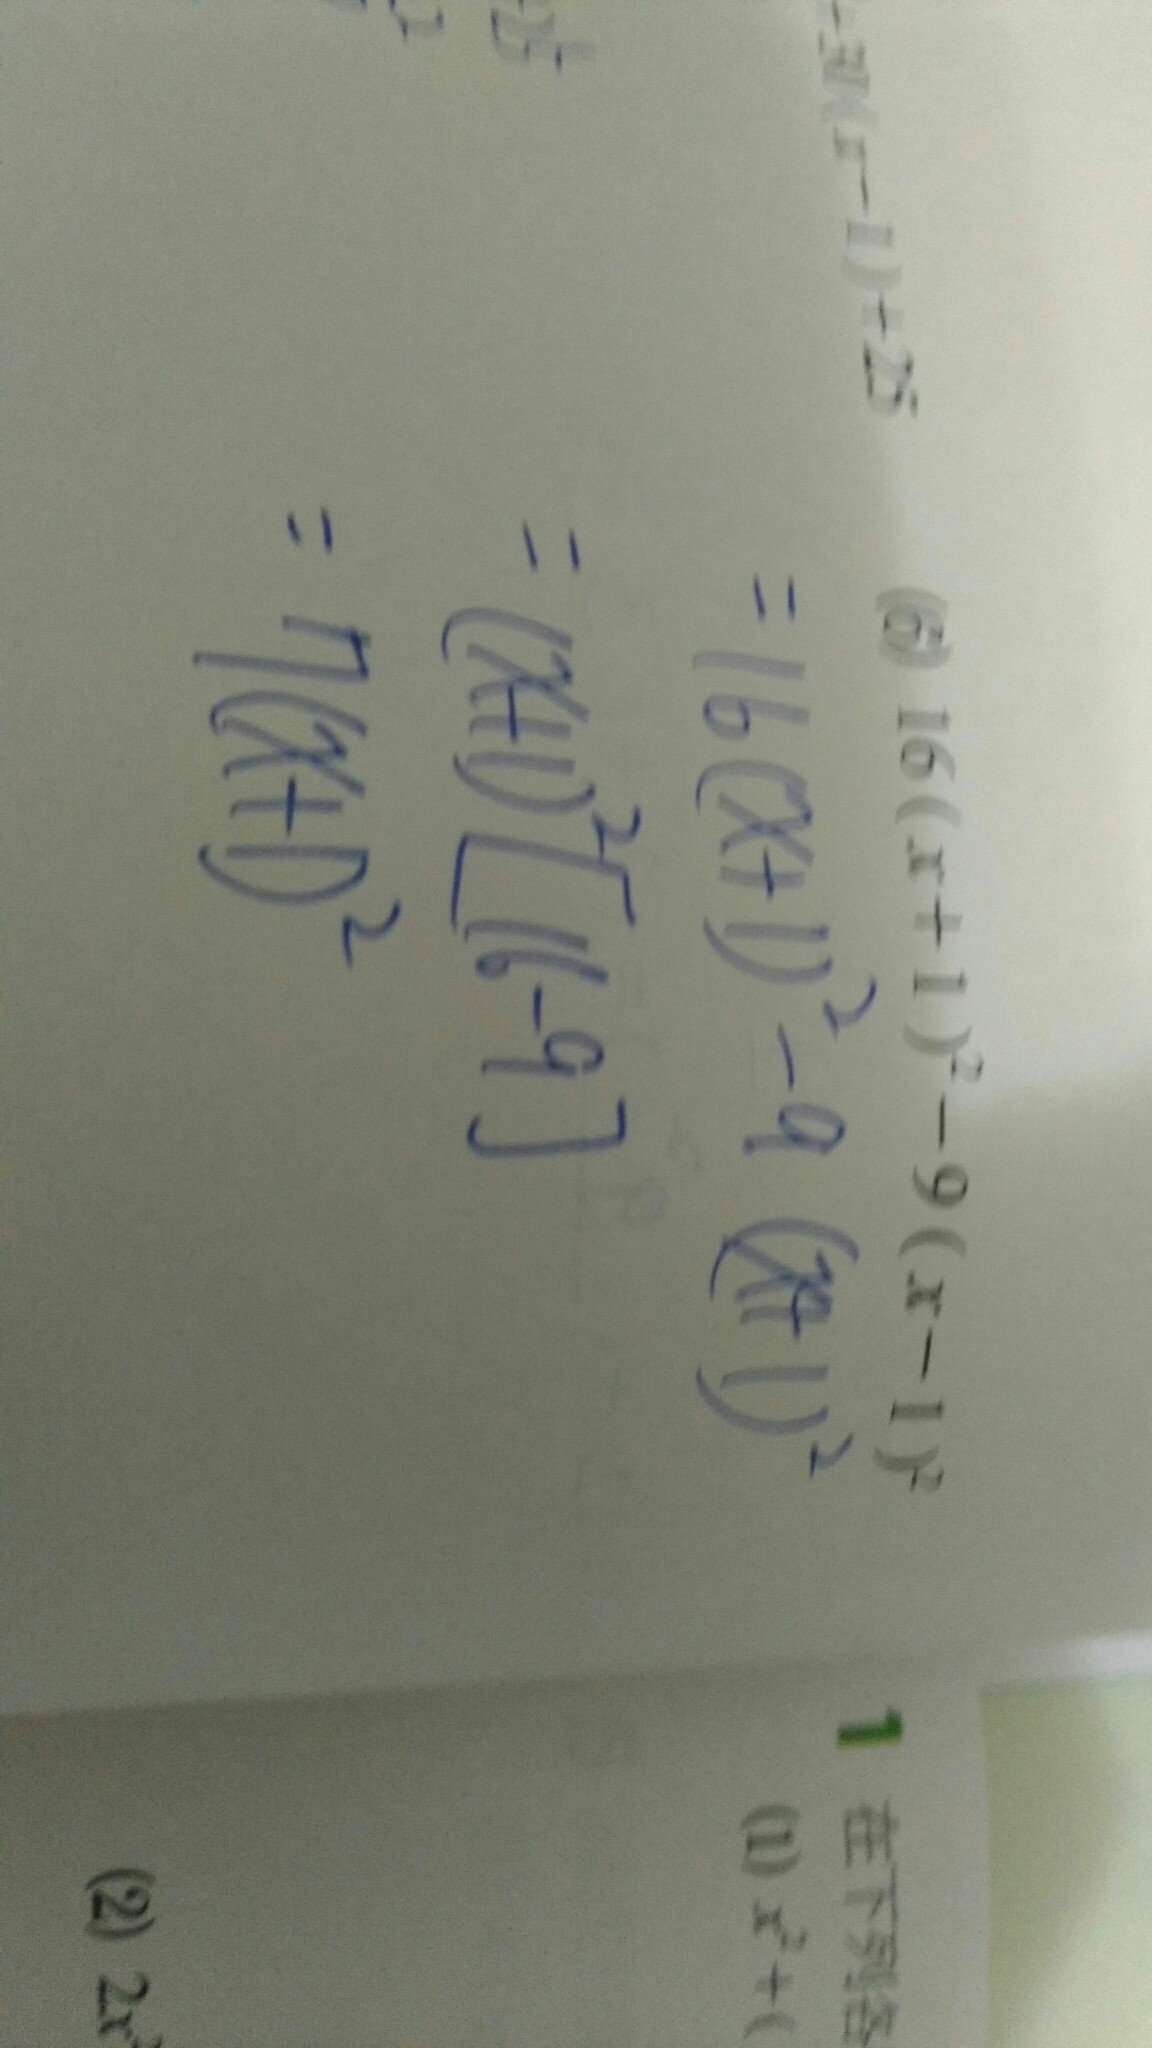 (x-1)+25
(6) 16(x+1)²-9(x-1)²
=16(x+1)²-9(x+1)²
=(x+1)²[16-9]
=7(x+1)²
1 在下列各
(1) x²+(
(2) 2x²